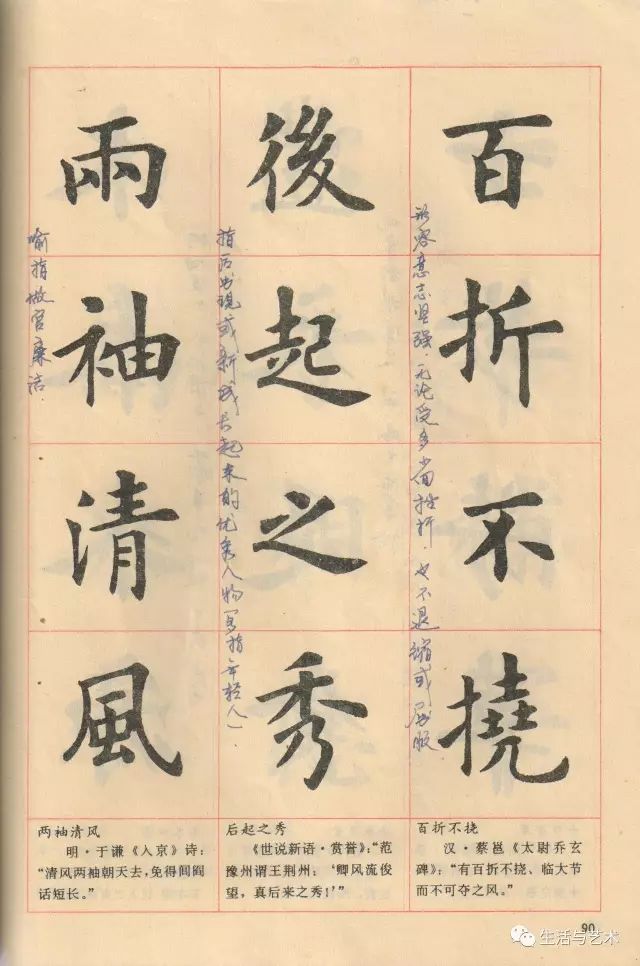 百折不撓
後起之秀
兩袖清風
形容意志坚强.无论受多少回挫折.也不退缩或屈服
指后出现或新成长起来的优秀人物(多指年轻人).
喻指做官廉洁.
百折不挠
汉·蔡邕《太尉乔玄
碑》:“有百折不挠、临大节
而不可夺之风。”
后起之秀
《世说新语·赏誉》:“范
豫州谓王荆州:‘卿风流俊
望,真后来之秀!’”
两袖清风
明·于谦《入京》诗:
“清风两袖朝天去,免得闾阎
话短长。”
90
生活与艺术